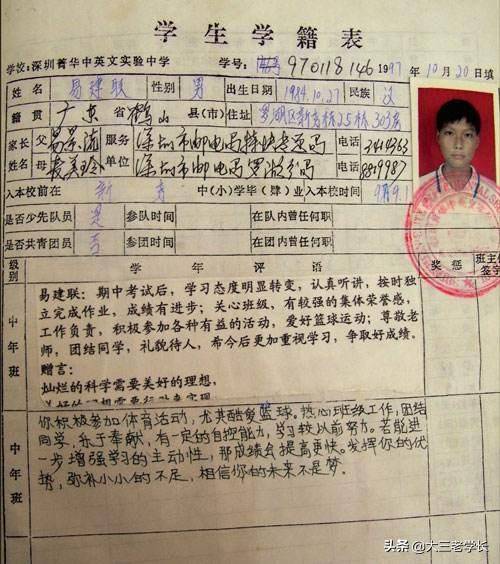 学生学籍表
学校:深圳菁华中英文实验中学 学号: 970118146 1997年10月20日填
姓名 易建联 性别 男 出生日期 1984.10.27 民族 汉
籍贯 广东省鹤山县(市) 住址 罗湖区 25栋303房
家长姓名 父 易景流 服务单位 深圳市邮电局 电话
母 麦美玲 深圳市邮电局罗湖分局 电话 8819987
入本校前在 中(小)学毕(肄)业 入本校时间
是否少先队员 是 参队时间 在队内曾任何职
是否共青团员 否 参团时间 在团内曾任何职
级别 学年评语 奖惩 班主任
中年班 易建联:期中考试后,学习态度明显转变,认真听讲,按时独
立完成作业,成绩有进步;关心班级,有较强的集体荣誉感,
工作负责,积极参加各种有益的活动,爱好篮球运动;尊敬老
师,团结同学,礼貌待人,希今后更加重视学习,争取好成绩。
赠言:
灿烂的科学需要美好的理想,
中年班 你积极参加体育活动,尤其酷爱篮球。热心班级工作,团结
同学,乐于奉献,有一定的自控能力,学习较以前努力。若能进
一步增强学习的主动性,那成绩会提高更快。发挥你的优
势,弥补小小的不足,相信你的未来不是梦。
头条 @大三老学长